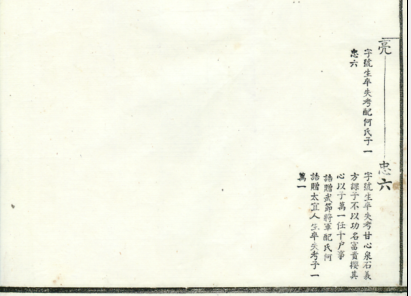 亮
字號生卒失考配何氏子一
忠六
忠六
字號生卒失考甘心泉石義
方課子不以功名富貴攖其
心以子萬一任千戶事
誥贈武節將軍配氏何
誥贈太宜人生卒失考子一
萬一